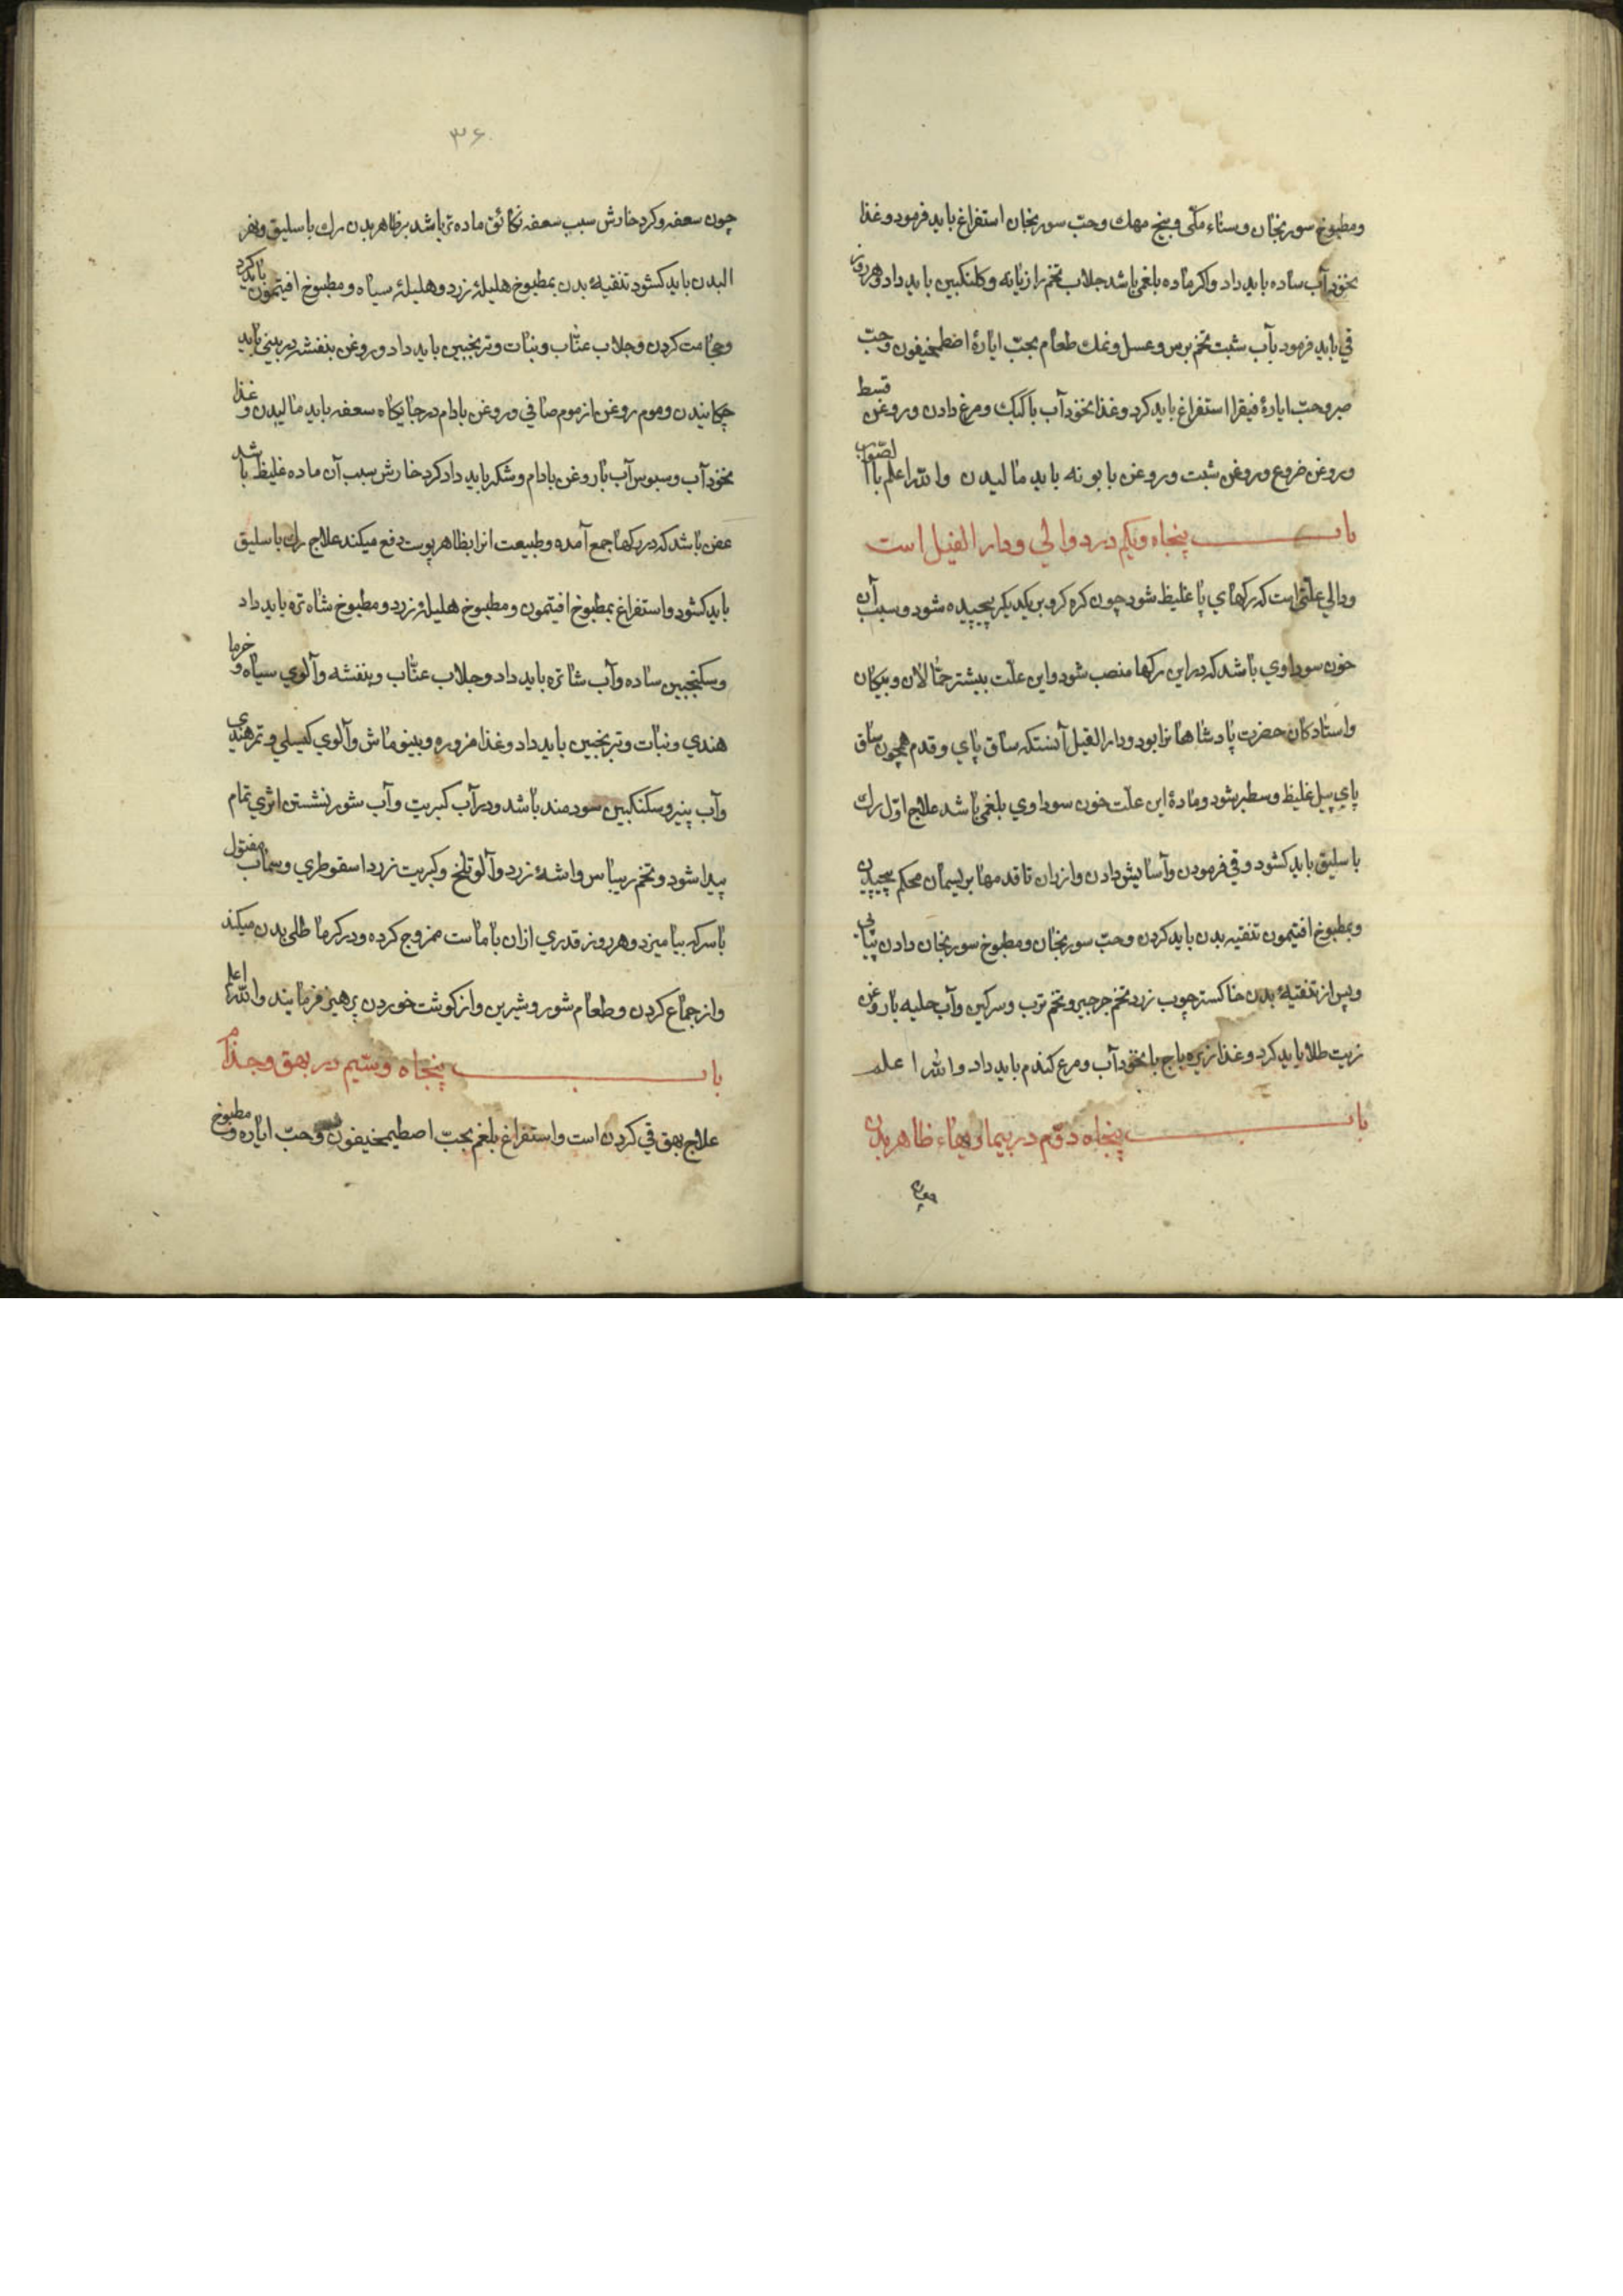 ومطبوخ سورنجان وسناء مکّی وبیخ مهك وحبّ سورنجان استفراغ باید فرمود وغذا
نخود آب ساده باید داد واکر ماده بلغمی باشد جلاب تخم رازیانه وکلنکبین باید داد وهر روز
قی باید فرمود بآب شبت تخم برس وعسل ونمك طعام بحبّ ایارهٔ اصطمخیقون وحبّ
صبر وحبّ ایارهٔ فیقرا استفراغ باید کرد وغذا نخود آب با کبك ومرغ دادن وروغن قسط
وروغن خروع وروغن شبت وروغن بابونه باید مالیدن والله اعلم بالصّواب
باب پنجاه ویکم در دوالي ودار الفیل است
ودالي علّتی است که رکهاي پا غلیظ شود چون کره کره بر یکدیکر پیچیده شود وسبب آن
خون سوداوي باشد که در این رکها منصب شود واین علّت بیشتر حمّالان وپیکان
واستادکان حضرت پادشاهانرا بود ودار الفیل آنستکه ساق پاي وقدم همچون ساق
پاي پیل غلیظ وسطبر شود ومادهٔ این علّت خون سوداوي بلغمی باشد علاج اوّل رك
باسلیق باید کشود وقی فرمودن وآسایش دادن واز ران تا قدمها بریسمان محکم پیچیدن
وبمطبوخ افتیمون تنقیه بدن باید کردن وحبّ سورنجان ومطبوخ سورنجان دادن پیاپی
وپس از تنقیهٔ بدن خاکستر چوب زرد تخم جرجیر وتخم ترب وسرکین وآب حلبه با روغن
زیت طلا باید کرد وغذا زیره باج با نخود آب ومرغ کندم باید داد والله اعلم
باب پنجاه دوّم در بیماریهاء ظاهر بدن
چون سعفه وکرد خارش سبب سعفه نکائق ماده تر باشد بر ظاهر بدن رك باسلیق وبهر
البدن باید کشود تنقیهٔ بدن بمطبوخ هلیلهٔ زرد وهلیلهٔ سیاه ومطبوخ افتیمون باید کرد
وحجامت کردن وجلاب عنّاب ونبات وترنجبین باید داد وروغن بنفشه در بینی باید
چکانیدن وموم روغن از موم صافي وروغن بادام در جایکاه سعفه باید مالیدن وغذا
نخود آب وسبوس آب با روغن بادام وشکر باید داد کرد خارش سبب آن ماده غلیظ باشد
عفن باشد که در رکها جمع آمده وطبیعت انرا بظاهر پوست دفع میکند علاج رك باسلیق
باید کشود واستفراغ بمطبوخ افتیمون ومطبوخ هلیلهٔ زرد ومطبوخ شاه تره باید داد
وسکنجبین ساده وآب شاتره باید داد وجلاب عنّاب وبنفشه وآلوي سیاه وخرما
هندي ونبات وترنجبین باید داد وغذا مزوره وبینو ماش وآلوي کیسلي وتمر هندي
وآب پنیر وسکنکبین سودمند باشد ودر آب کبریت وآب شور نشستن اثري تمام
پیدا شود وتخم ریباس واشنهٔ زرد وآلو تلخ وکبریت زرد اسقوطري وسیماب مقتول
با سرکه بیامیزد وهر روز قدري ازان با ماست ممزوج کرده ودر کرما طلی بدن میکند
واز جماع کردن وطعام شور وشیرین واز کوشت خوردن پرهیز فرمایند والله اعلم
باب پنجاه وسیم در بهق وجذام
علاج بهق قی کردن است واستفراغ بلغم بحبّ اصطیمخیقون وحبّ ایاره ومطبوخ